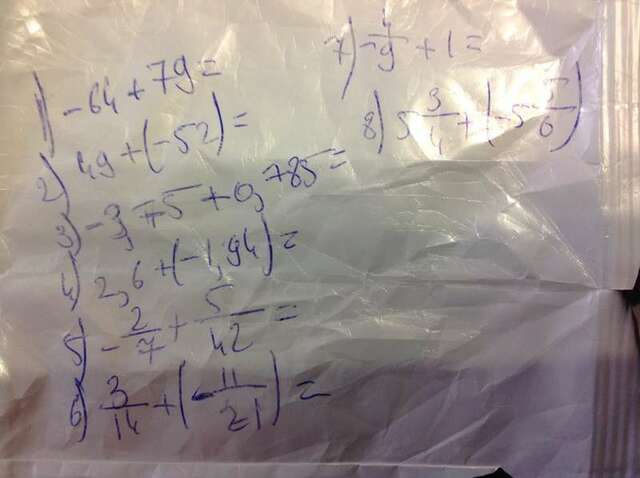 1) -64 + 79 =
2) 49 + (-52) =
3) -3,75 + 0,785 =
4) 2,6 + (-1,94) =
5) -2/7 + 5/42 =
6) 3/14 + (-11/21) =
7) -4/9 + 1 =
8) 5 3/4 + (-5 5/6)